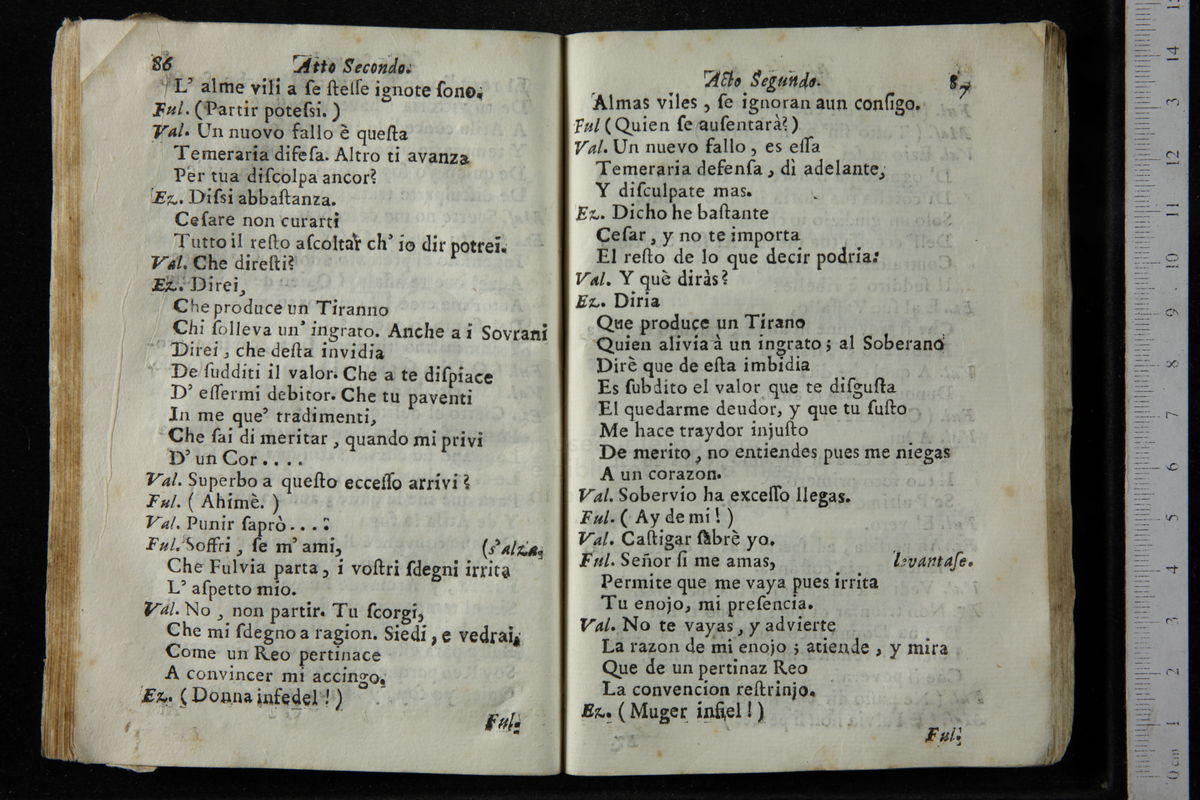 86
Atto Secondo.
L' alme vili a ſe ſteſſe ignote ſono.
Ful. (Partir poteſsi.)
Val. Un nuovo fallo è queſta
Temeraria difeſa. Altro ti avanza
Per tua diſcolpa ancor?
Ez. Diſsi abbaſtanza.
Ceſare non curarti
Tutto il reſto aſcoltar ch' io dir potrei.
Val. Che direſti?
Ez. Direi,
Che produce un Tiranno
Chi ſolleva un' ingrato. Anche a i Sovrani
Direi, che deſta invidia
De ſudditi il valor. Che a te diſpiace
D' eſſermi debitor. Che tu paventi
In me que' tradimenti,
Che ſai di meritar, quando mi privi
D' un Cor....
Val. Superbo a queſto ecceſſo arrivi?
Ful. (Ahimè.)
Val. Punir ſaprò....
Ful. Soffri, ſe m' ami, (s'alza.
Che Fulvia parta, i voſtri ſdegni irrita
L' aſpetto mio.
Val. No, non partir. Tu ſcorgi,
Che mi ſdegno a ragion. Siedi, e vedrai,
Come un Reo pertinace
A convincer mi accingo.
Ez. (Donna infedel!)
Ful.
Acto Segundo. 87
Almas viles, ſe ignoran aun conſigo.
Ful (Quien ſe auſentarà?)
Val. Un nuevo fallo, es eſſa
Temeraria defenſa, dì adelante,
Y diſculpate mas.
Ez. Dicho he baſtante
Ceſar, y no te importa
El reſto de lo que decir podria.
Val. Y què diràs?
Ez. Diria
Que produce un Tirano
Quien alivia à un ingrato; al Soberano
Dirè que de eſta imbidia
Es ſubdito el valor que te diſguſta
El quedarme deudor, y que tu ſuſto
Me hace traydor injuſto
De merito, no entiendes pues me niegas
A un corazon.
Val. Sobervio ha exceſſo llegas.
Ful. (Ay de mi!)
Val. Caſtigar ſabrè yo.
Ful. Señor ſi me amas, levantaſe.
Permite que me vaya pues irrita
Tu enojo, mi preſencia.
Val. No te vayas, y advierte
La razon de mi enojo; atiende, y mira
Que de un pertinaz Reo
La convencion reſtrinjo.
Ez. (Muger infiel!)
Ful.